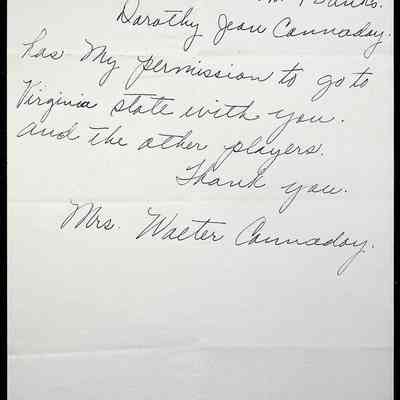 Dorothy Jean Cannaday.
has My permission to go to
Virginia state with you.
and the other players.
Thank you.
Mrs. Walter Cannaday.